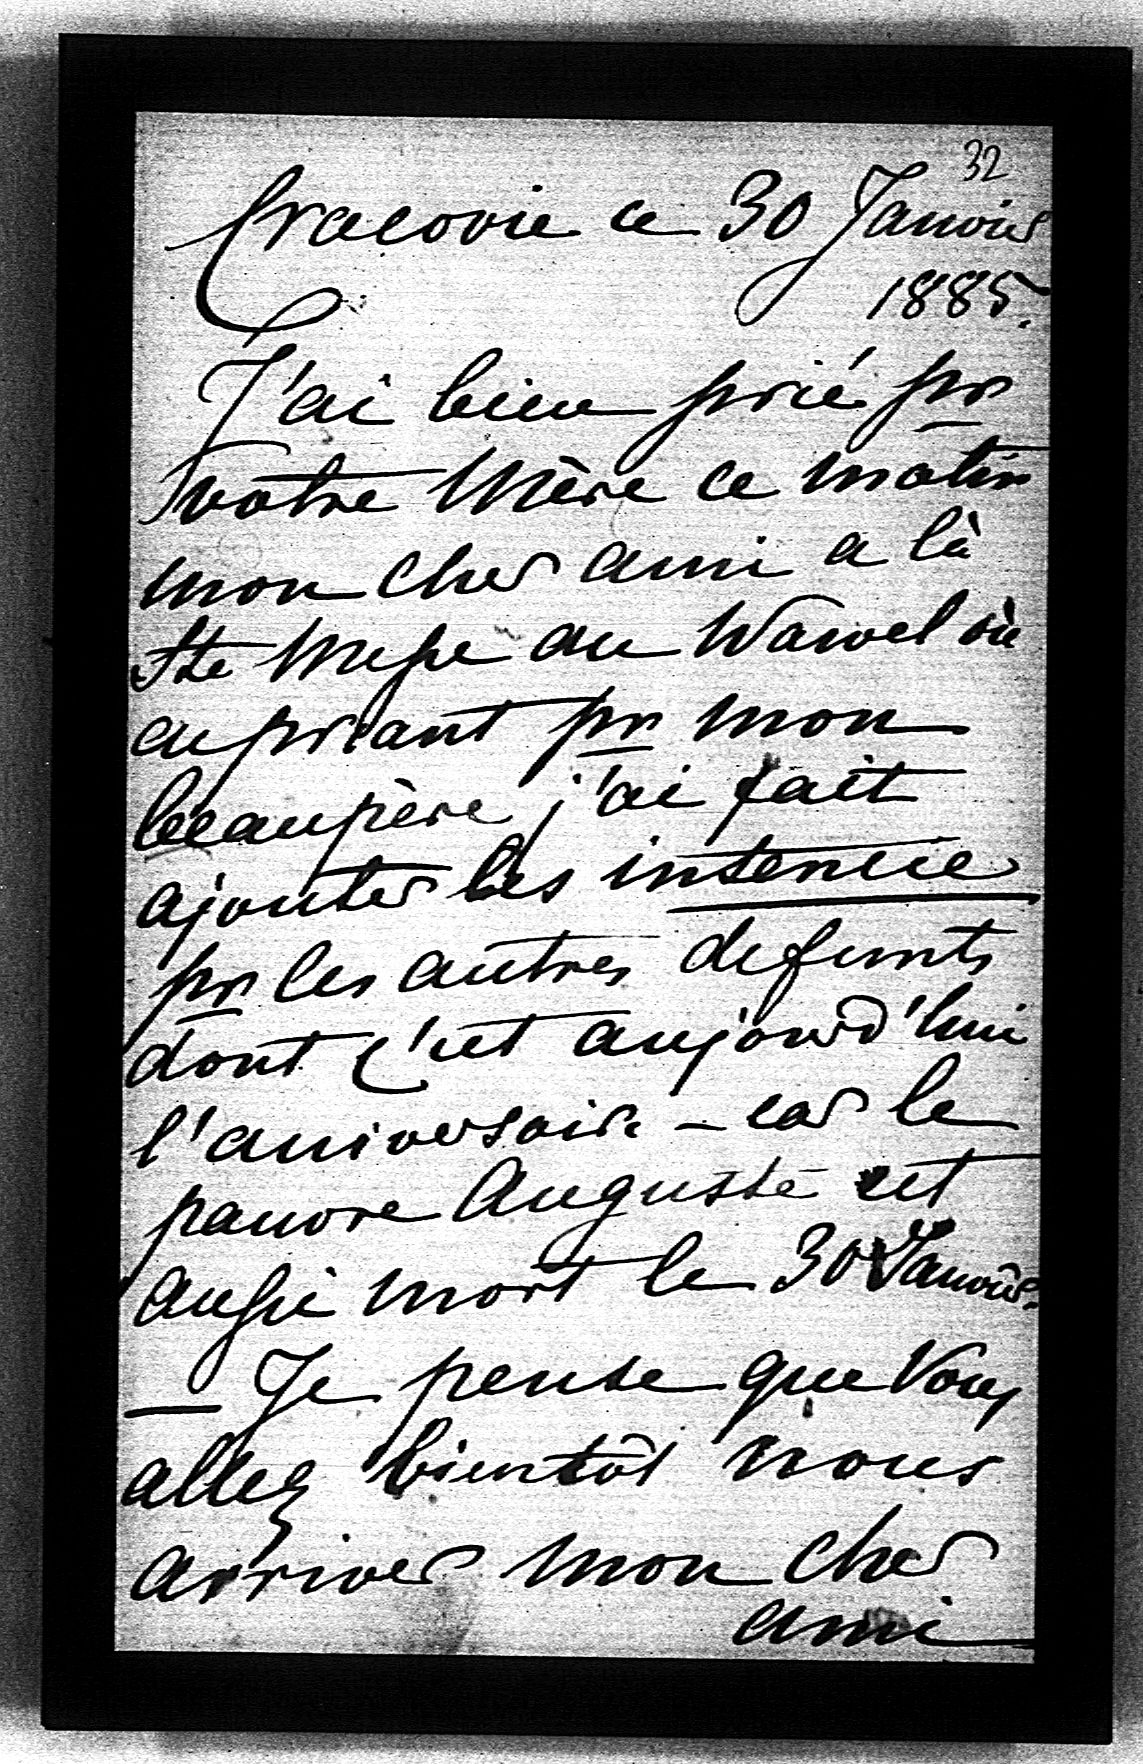 32
Cracovie ce 30 Janvier
1885.
J'ai bien prié pr
votre Mère ce matin
mon cher ami a là
Ste Messe au Wawel où
en priant pr mon
beaupère j'ai fait
ajouter les intencie
pr les autres defunts
dont c'est aujourd'hui
l'aniversaire – car le
pauvre Auguste est
aussi mort le 30 Janvier.
— Je pense que Vous
allez bientôt nous
arriver mon cher
ami